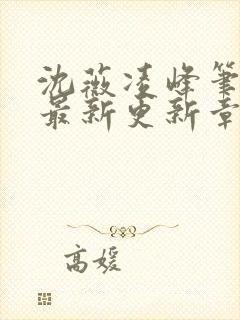 沈薇凌峰筆
最新更新章
高媛